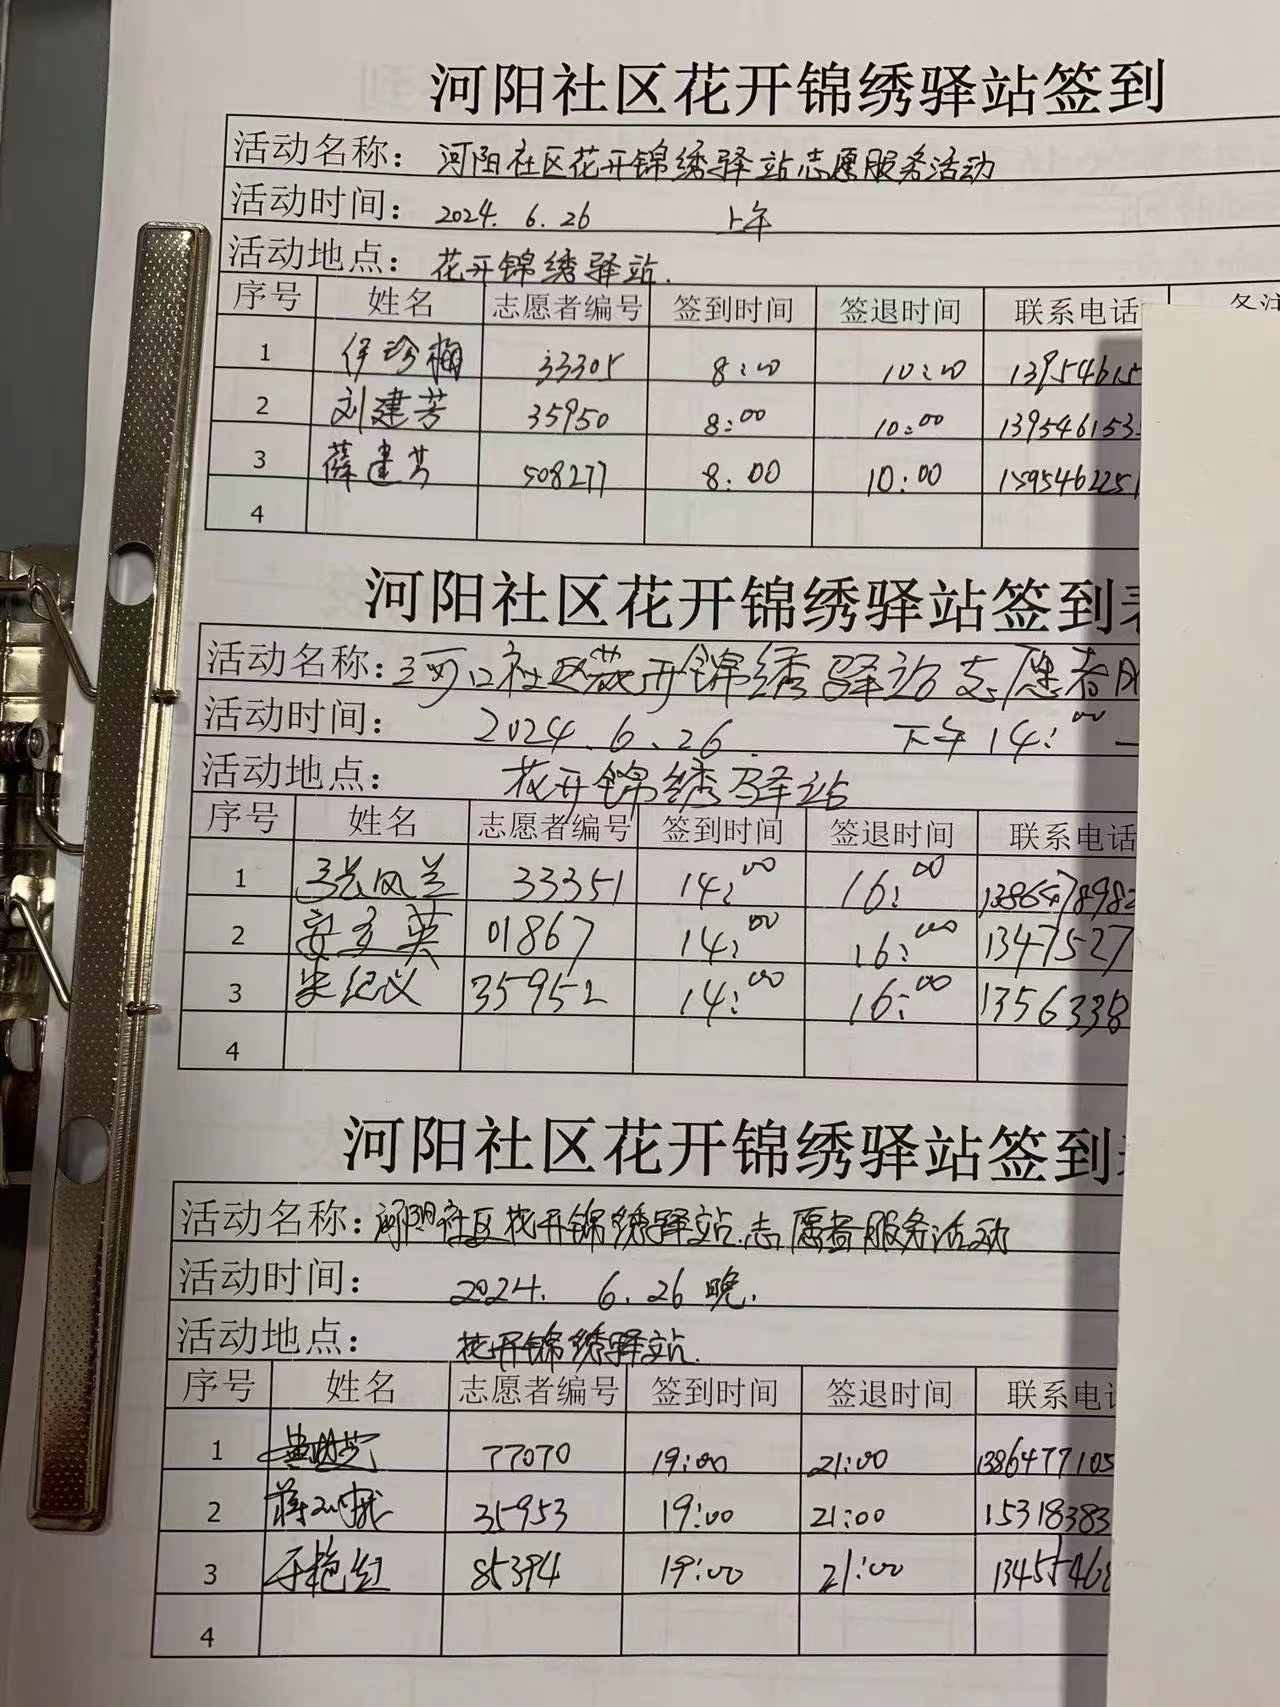 河阳社区花开锦绣驿站签到
活动名称： 河阳社区花开锦绣驿站志愿服务活动
活动时间： 2024.6.26 上午
活动地点： 花开锦绣驿站.
序号 姓名 志愿者编号 签到时间 签退时间 联系电话 备注
1 伊珍梅 33305 8:00 10:00 13954615
2 刘建芳 35950 8:00 10:00 139546153
3 薛建芳 508277 8:00 10:00 1595462251
4
河阳社区花开锦绣驿站签到表
活动名称： 河口社区花开锦绣驿站志愿者服
活动时间： 2024.6.26. 下午14:00—
活动地点： 花开锦绣驿站
序号 姓名 志愿者编号 签到时间 签退时间 联系电话
1 凤兰 33351 14:00 16:00 1386478982
2 英 01867 14:00 16:00 1347527
3 宋纪义 35952 14:00 16:00 1356338
4
河阳社区花开锦绣驿站签到表
活动名称： 河阳社区花开锦绣驿站志愿者服务活动
活动时间： 2024. 6.26晚.
活动地点： 花开锦绣驿站.
序号 姓名 志愿者编号 签到时间 签退时间 联系电话
1 77070 19:00 21:00 1386477105
2 蒋 35953 19:00 21:00 15318383
3 于艳红 85394 19:00 21:00 13455468
4